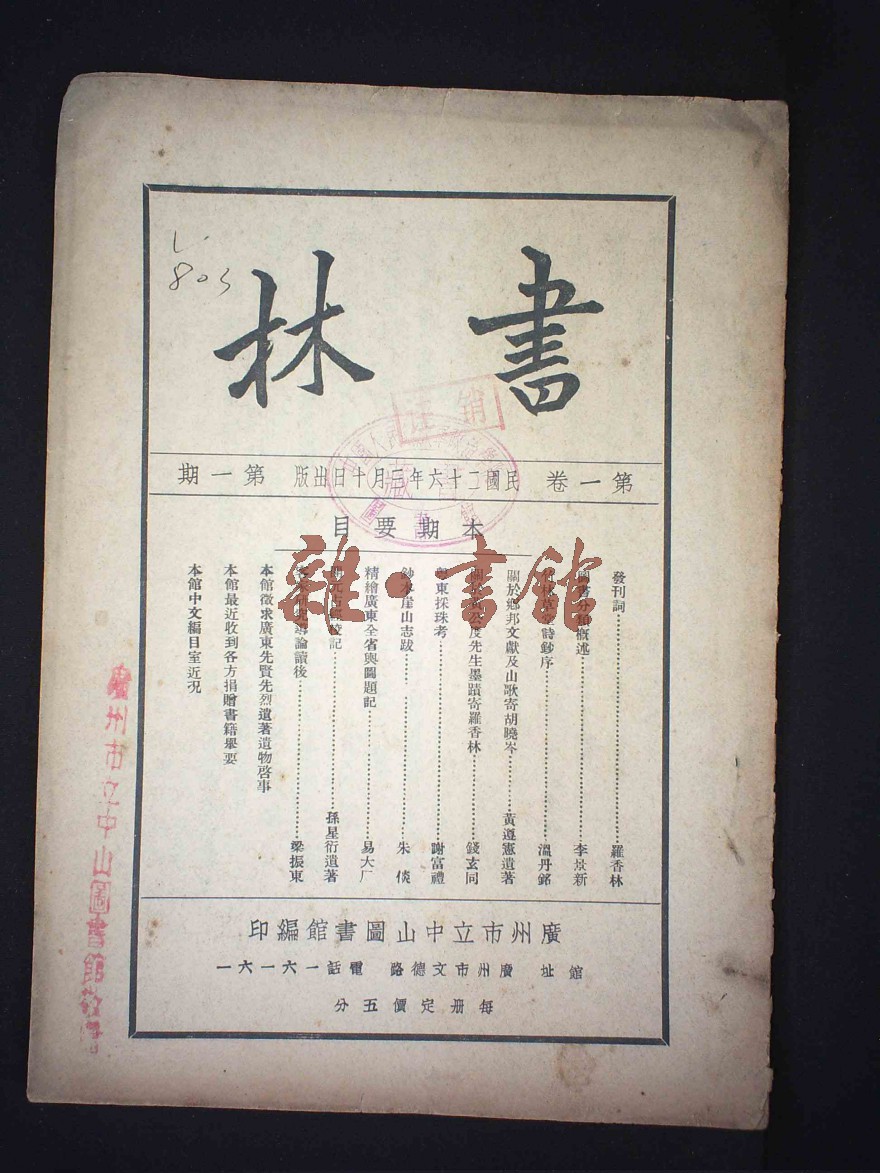 書林
L.
803
註銷
第一卷 民國二十六年三月十日出版 第一期
本期要目
發刊詞 羅香林
圖書分類概述 李景新
詩鈔序 溫丹銘
關於鄉邦文獻及山歌寄胡曉岑 黃遵憲遺著
公度先生墨蹟寄羅香林 錢玄同
東採珠考 謝富禮
鈔本崖山志跋 朱倓
精繪廣東全省輿圖題記 易大厂
記 孫星衍遺著
論讀後 梁振東
本館徵求廣東先賢先烈遺著遺物啓事
本館最近收到各方捐贈書籍舉要
本館中文編目室近況
雜·書館
廣州市立中山圖書館編印
館址 廣州市文德路 電話一六一六一
每册定價五分
廣州市立中山圖書館